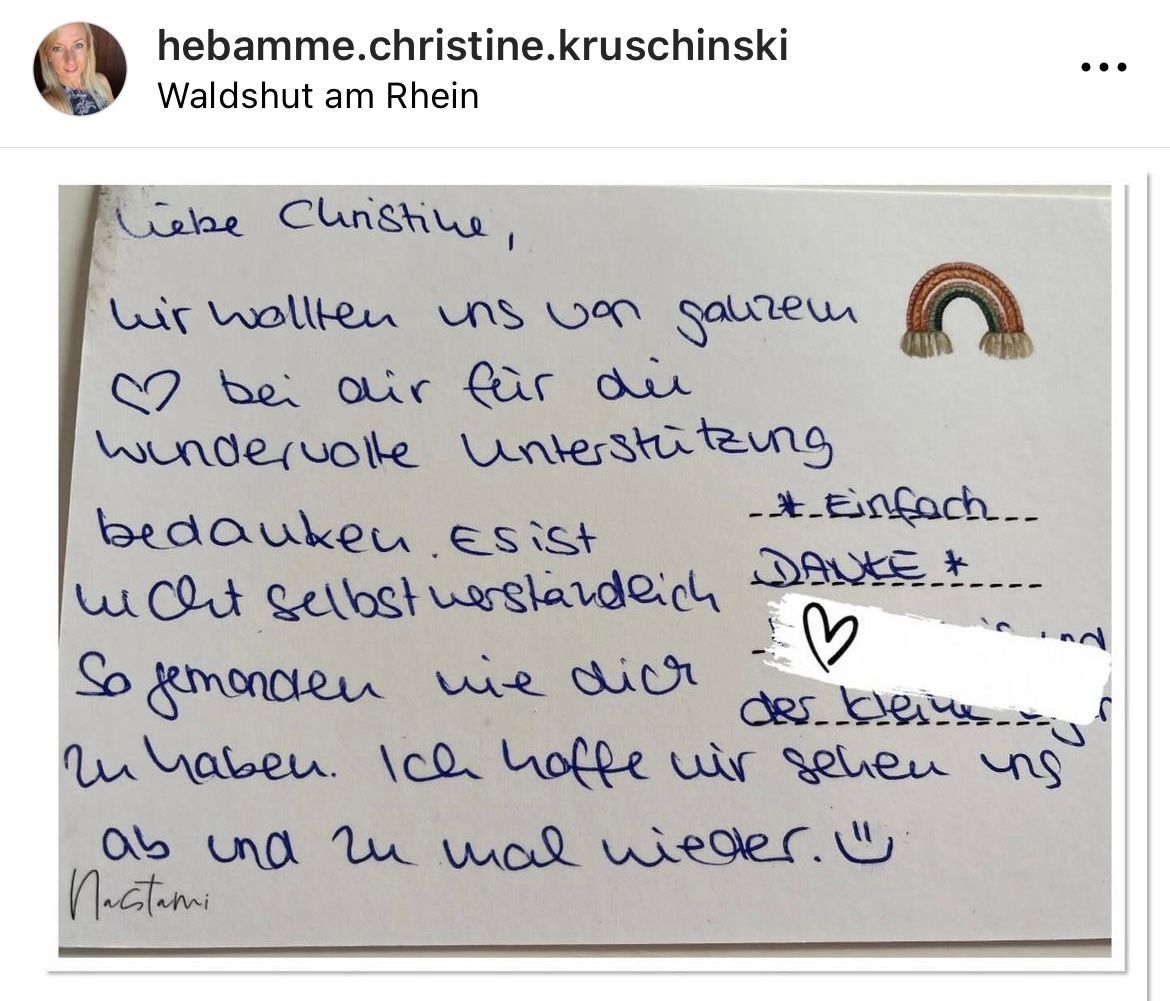 hebamme.christine.kruschinski
Waldshut am Rhein
Liebe Christine,
wir wollten uns von ganzem
♡ bei dir für die
wundervolle Unterstützung
bedanken. Es ist
nicht selbstverständlich
so jemanden wie dich
zu haben. Ich hoffe wir sehen uns
ab und zu mal wieder.
* Einfach
DANKE *
und
der kleine
Nastami